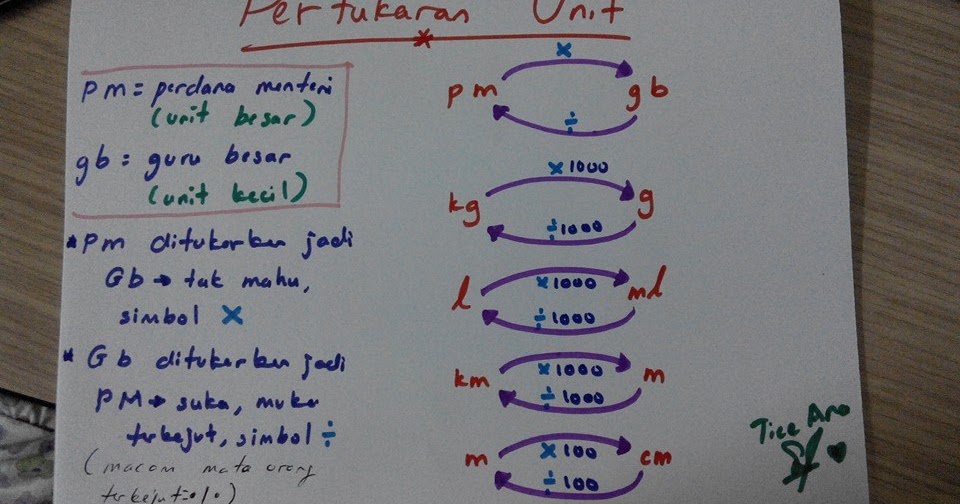 Pertukaran Unit
pm = perdana menteri
(unit besar)
gb = guru besar
(unit kecil)
* Pm ditukarkan jadi
Gb → tak mahu,
simbol ×
* Gb ditukarkan jadi
PM → suka, muka
terkejut, simbol ÷
(macam mata orang
terkejut = 0/0)
×
pm gb
÷
×1000
kg g
÷1000
l ×1000 ml
÷1000
km ×1000 m
÷1000
m ×100 cm
÷100
Tice Ano